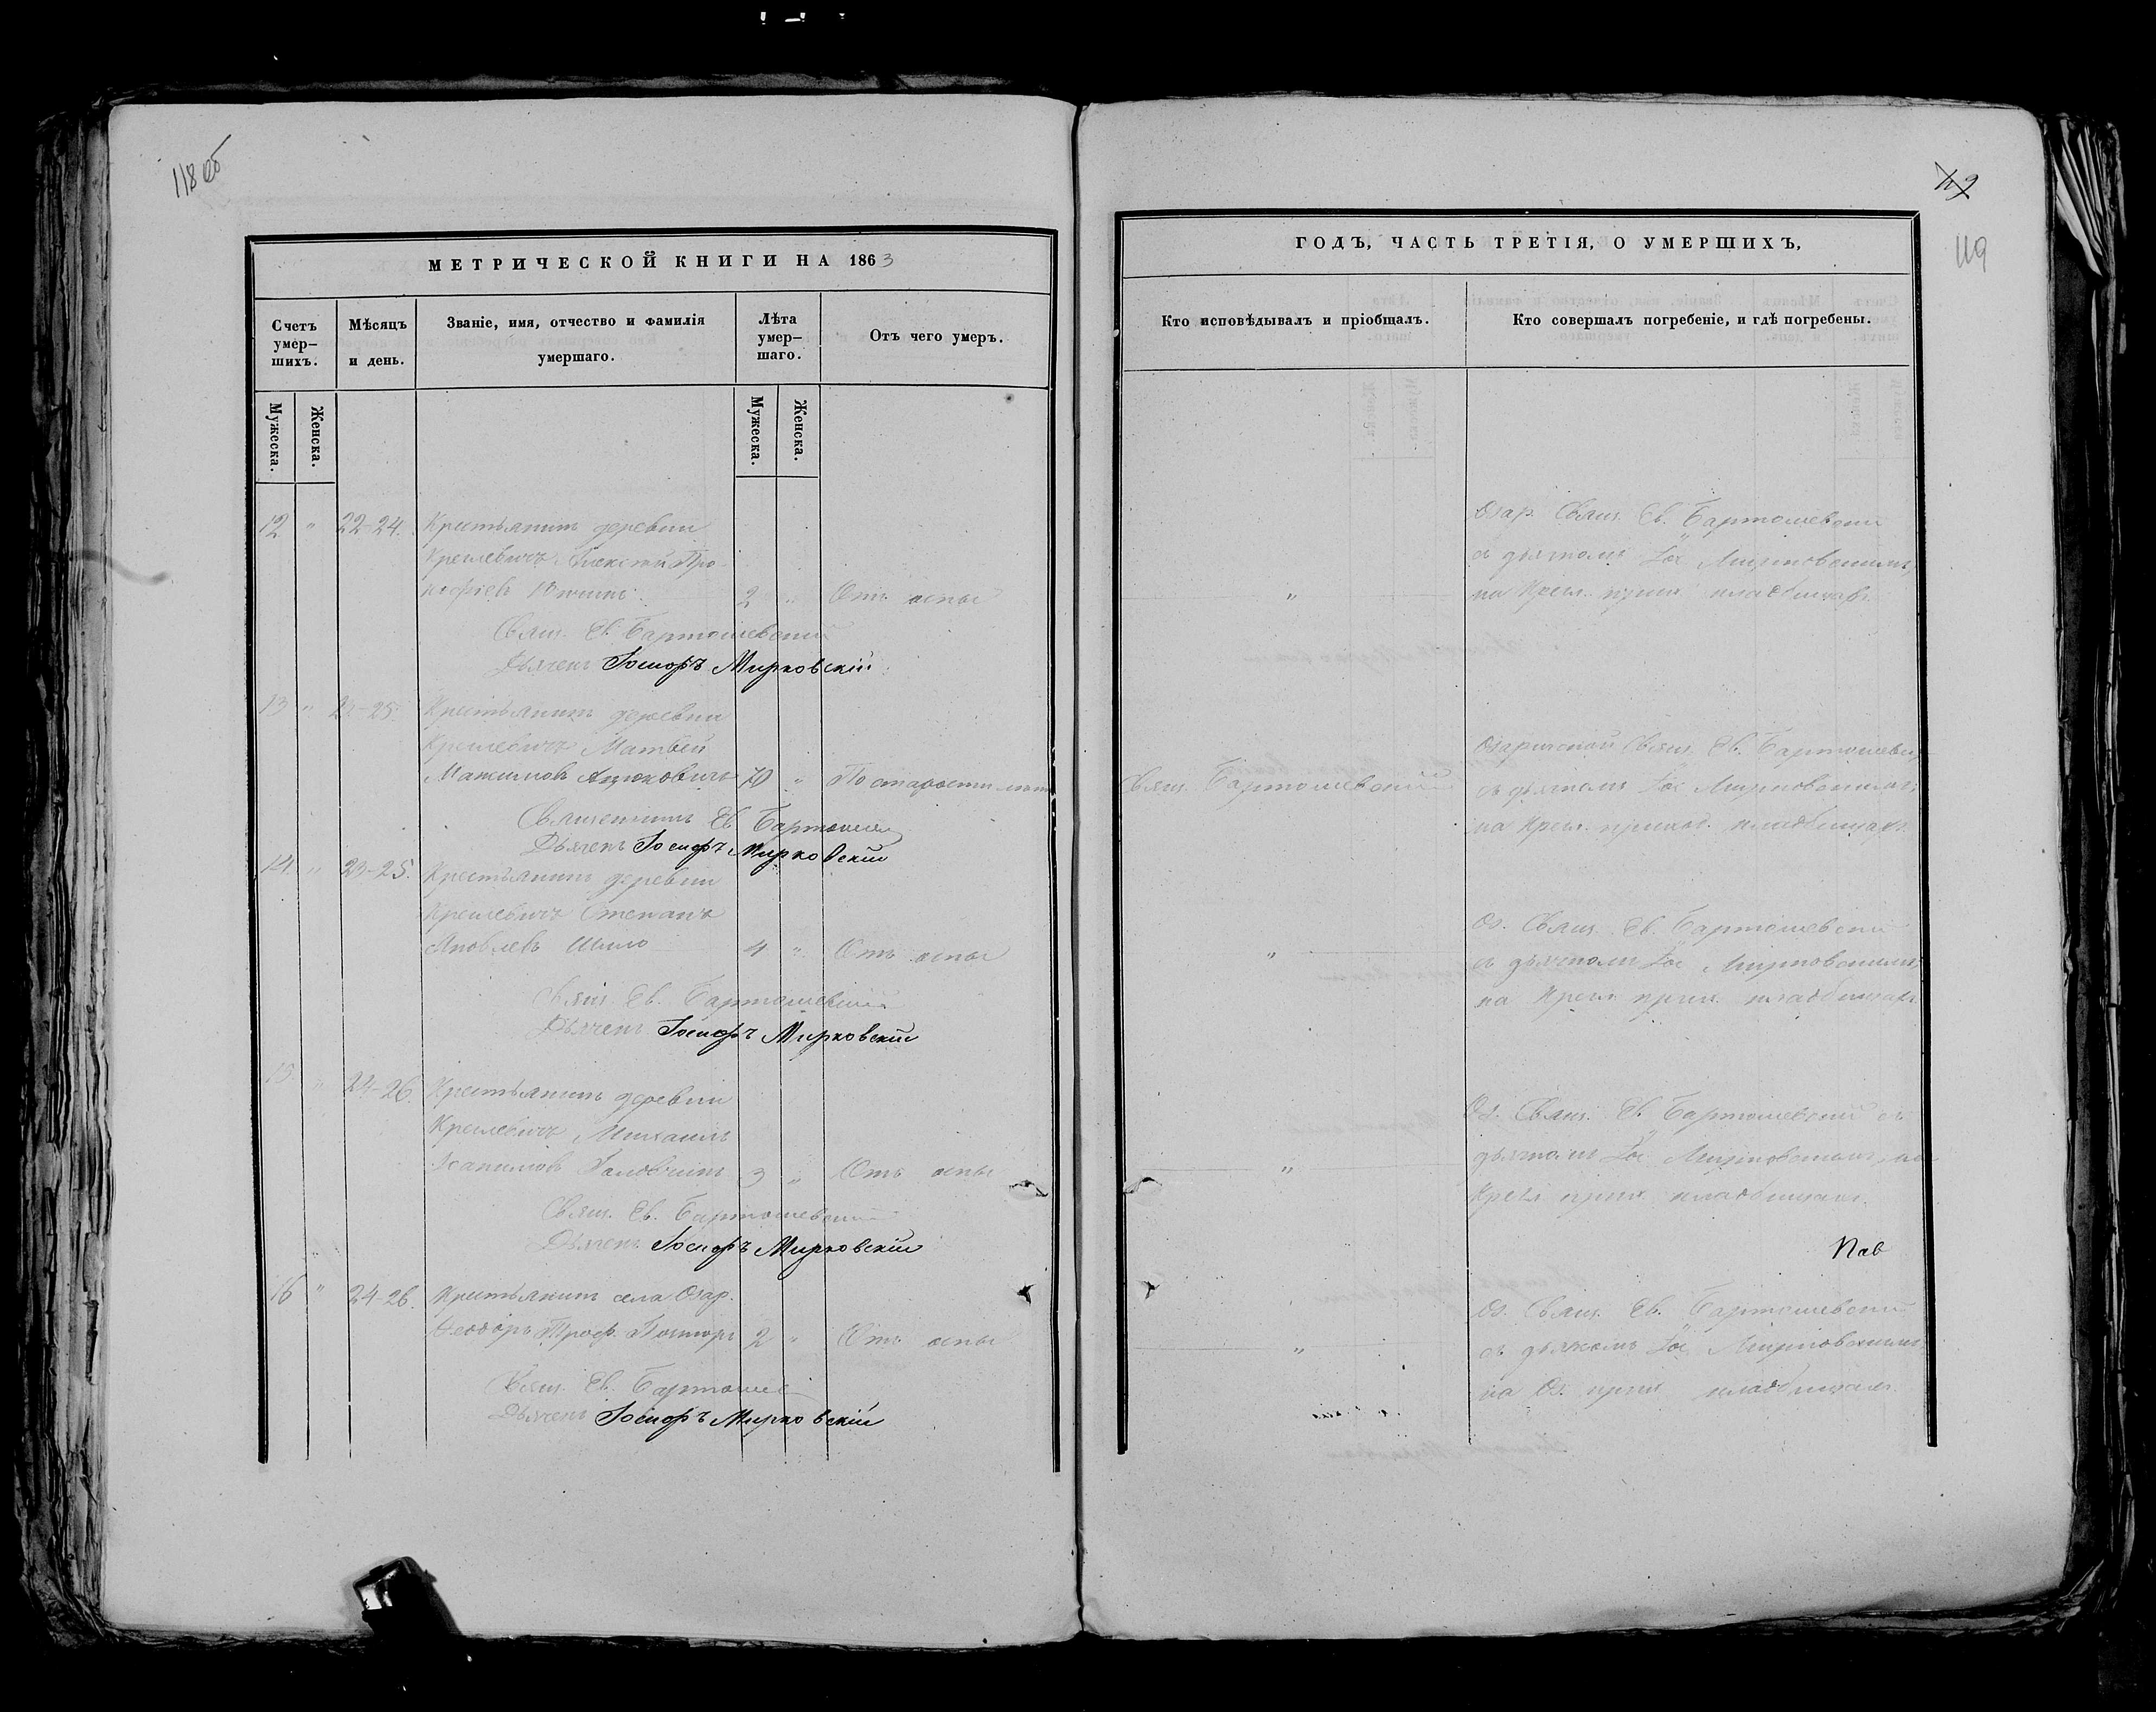 118 об
МЕТРИЧЕСКОЙ КНИГИ НА 1863
Счетъ умер-
шихъ.
Мѣсяцъ
и день.
Званіе, имя, отчество и фамилія
умершаго.
Лѣта
умер-
шаго.
Отъ чего умеръ.
Мужеска.
Женска.
Мужеска.
Женска.
12 " 22-24. Крестьянинъ деревни
Кремевичъ Алексѣй Про
2 " Отъ оспы
Свящ. Ев. Бартошевскій
Дьячекъ Іосифъ Мирковскій
13 " 23-25. Крестьянинъ деревни
Кремевичъ Матвей
Максимовъ Ацюковичъ 70 " По старости лѣтъ
Священникъ Ев Бартошев
Дьячекъ Іосифъ Мирковскій
14 " 23-25. Крестьянинъ деревни
Кремевичъ Степанъ
Яковлевъ Шило 4 " Отъ оспы
Свящ. Ев. Бартошевскій
Дьячекъ Іосифъ Мирковскій
15 " 24-26. Крестьянинъ деревни
Кремевичъ Михаилъ
3 " Отъ оспы
Свящ. Ев. Бартошевскій
Дьячекъ Іосифъ Мирковскій
16 " 24-26. Крестьянинъ села Озар.
Ѳеодоръ Троф. 2 " Отъ оспы
Свящ. Ев. Бартошев
Дьячекъ Іосифъ Мирковскій
119
ГОДЪ, ЧАСТЬ ТРЕТІЯ, О УМЕРШИХЪ,
Кто исповѣдывалъ и пріобщалъ.
Кто совершалъ погребеніе, и гдѣ погребены.
Озар. Свящ. Ев. Бартошевскій
съ дьячкомъ Іос Мирковскимъ,
" на Крем. прих. кладбищахъ.
Озаричской Свящ. Ев. Бартошевск
Свящ. Бартошевскій съ дьячкомъ Іос Мирковскимъ,
на Крем. приход. кладбищахъ.
Оз. Свящ. Ев. Бартошевскій
" съ дьячкомъ Іос Мирковскимъ,
на Крем прих. кладбищахъ.
Оз. Свящ. Ев. Бартошевскій съ
" дьячкомъ Іос Мирковскимъ, на
Крем прих кладбищахъ.
Оз. Свящ. Ев. Бартошевскій
" съ дьячкомъ Іос Мирковскимъ,
на Оз. прих кладбищахъ.